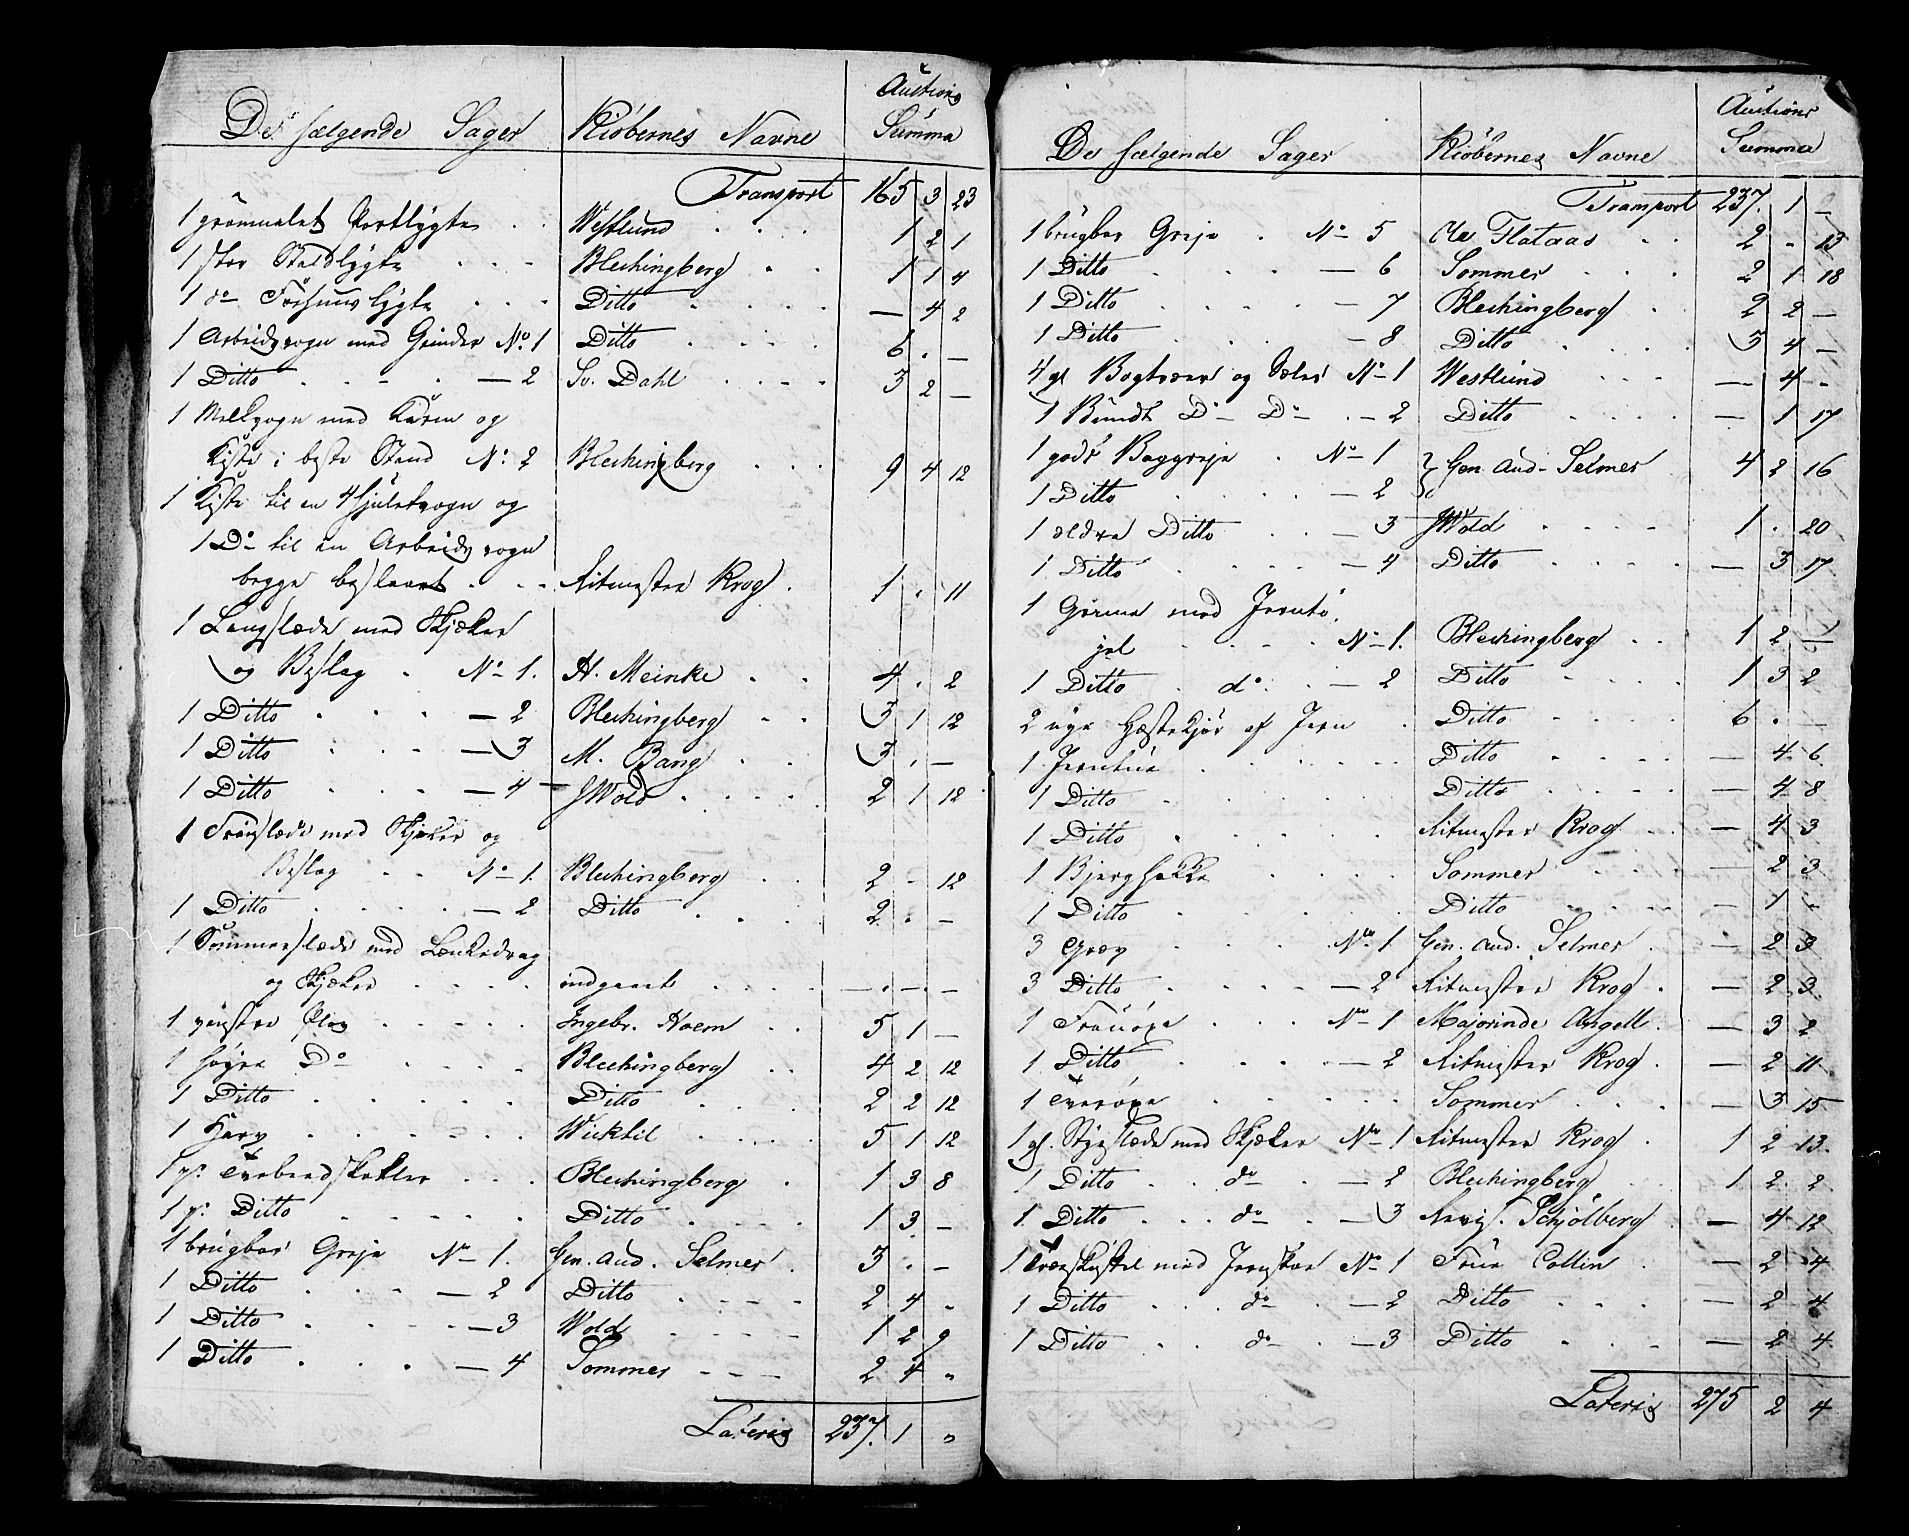 De sælgende Sager Kiöbernes Navne Auctions Summa
Transport 165 3 23
1 grönmalet Portlygte . . Westlund . . . 1 2 1
1 stor Staldlygte . . . Blechingberg . . 1 1 4
1 do lygte . . . Ditto . . . . — 4 2
1 Arbeidsvogn med Grinder No 1 Ditto . . . . 6 . —
1 Ditto . . . . — 2 Sv. Dahl . . . . 3 2 —
1 Melkvogn med Karm og
Kiste i beste Stand No 2 Blechingberg . . . 9 4 12
1 Kiste til en 4 Hjuletvogn og
1 Do til en Arbeidsvogn
begge beslaaet . . . Ritmester Krog . 1 . 11
1 Langslæde med Skjæker
og Beslag . No 1. H. Meinke . . 4 . 2
1 Ditto . . . — 2 Blechingberg . . 3 1 12
1 Ditto . . . — 3 M. Bang . . 3 . —
1 Ditto — 4 — J Wold . . . . 2 1 12
1 slæde med Skjæker og
Beslag . . No 1. Blechingberg . . 2 - 12
1 Ditto . . . . — 2 Ditto . . . 2 . —
1 Sommerslæde med Lænkedrag
og Skjæker . . . . indgaaet . . . . — . — . —
1 venstre Plog . . . . . Ingebr. Holm . . 5 1 —
1 høire Do . . . . Blechingberg . . 4 2 12
1 Ditto . . . . . Ditto . . . 2 2 12
1 Harv . . . . . . Wicktil . . . . 5 1 12
1 p: Tvebendskakler . . . Blechingberg . 1 3 8
1 p: Ditto . . . . . Ditto . . . . 1 3 —
1 brugbar Greje No 1. Gen. Aud. Selmer . 3 . —
1 Ditto . . . — 2 Ditto . . . . 2 4 "
1 Ditto . . . . — 3 Wold . . . . 1 2 9
1 Ditto . . . — 4 Sommer . . . 2 4 "
Lateris 237. 1 "
De sælgende Sager Kiöbernes Navne Auctions Summa
Transport 237. 1 —
1 brugbar Greje . No 5 Ole Flataas . . 2 " 13
1 Ditto . . . . — 6 Sommer . . . 2 1 18
1 Ditto . . . . — 7 Blechingberg . 2 2 —
1 Ditto . . . — 8 Ditto . . . . 3 4 —
4 gl Bogtræer og Sæler No 1 Westlund . . . — 4 -
1 Bundt Do Do . — 2 Ditto . . . . — 1 17
1 godt Baggreje . No 1 } Gen. Aud. Selmer . 4 2 16
1 Ditto . . . . — 2
1 ældre Ditto . . — 3 J Wold . . . . 1 . 20
1 Ditto . . . . — 4 Ditto . . . . — 3 17
1 Grime med Jerntö,
jel . . . . No 1. Blechingberg . . 1 2 —
1 Ditto . do . . — 2 Ditto . . . . 1 3 2
2 nye Hæstekjør af Jern . Ditto . . . . 6 . —
1 . . . . . . Ditto . . . . — 4 6
1 Ditto . . . . . . Ditto . . . . — 4 8
1 Ditto . . . . . . Ritmester Krog . . — 4 3
1 Bjerghakke . . . . Sommer . . . — 2 3
1 Ditto . . . . . Ditto . . . . — 1 -
3 Græv . . . . No 1. Gen. Aud. Selmer . — 2 3
3 Ditto . . . . — 2 Ritmester Krog . — 2 3
1 . . . No 1 Majorinde Angell . — 3 2
1 Ditto . . . . — 2 Ritmester Krog . — 2 11
1 Tverøxe . . . . . . Sommer . . . — 3 15
1 gl. slæde med Skjæker No 1 Ritmester Krog . 1 2 13.
1 Ditto . . do . — 2 Blechingberg . . 1 2 2
1. Ditto . . . do . — 3 Revis. Schjölberg . — 4 12
1 Træskuffel med Jernskoe No 1 Frue Collin . — 2 4
1 Ditto . . . do . — 2 Ditto . . . — 2 4
1 Ditto . . do . — 3 Ditto . . . — 2 4
Lateris 275 2 4